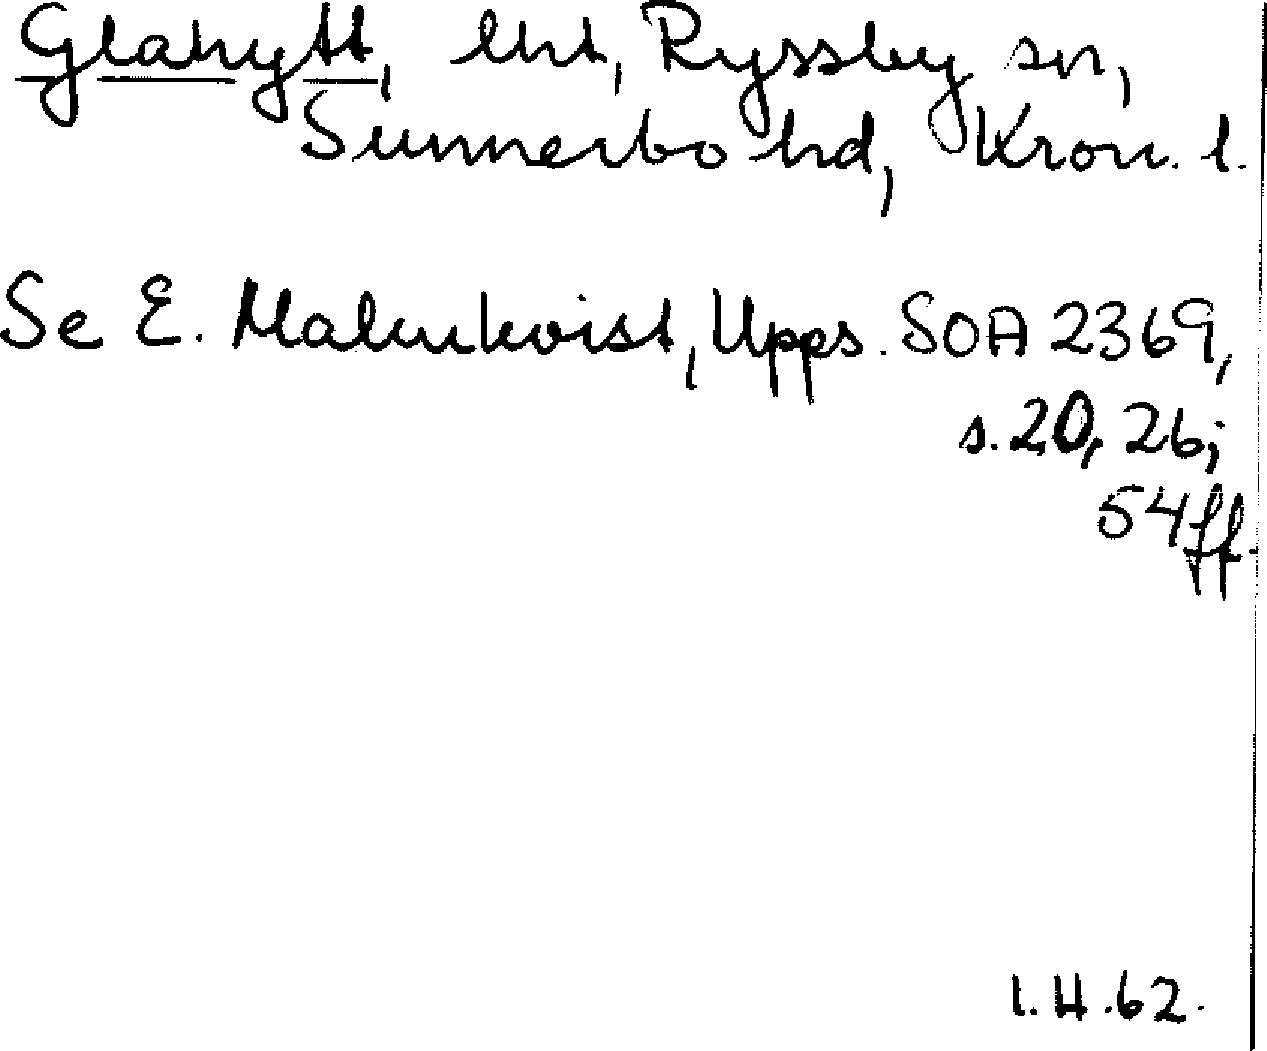 Glahytt, lht, Ryssby sn,
Sunnerbo hd, Kron. l.
Se E. Malmkvist, Upps. SOA 2369,
s. 20, 26;
54 ff.
1.II.62.